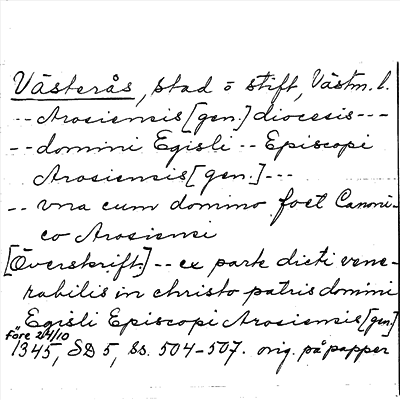 Västerås, stad o stift, Västm. l.
-- Arosiensis [gen.] diocesis ---
-- domini Egisli -- Episcopi
Arosiensis [gen.] ---
-- vna cum domino foet Canoni-
co Arosiensi
[Överskrift:] -- ex parte dicti vene-
rabilis in christo patris domini
Egisli Episcopi Arosiensis [gen.]
före 2/4/10
1345, SD 5, ss. 504-507. orig. på papper